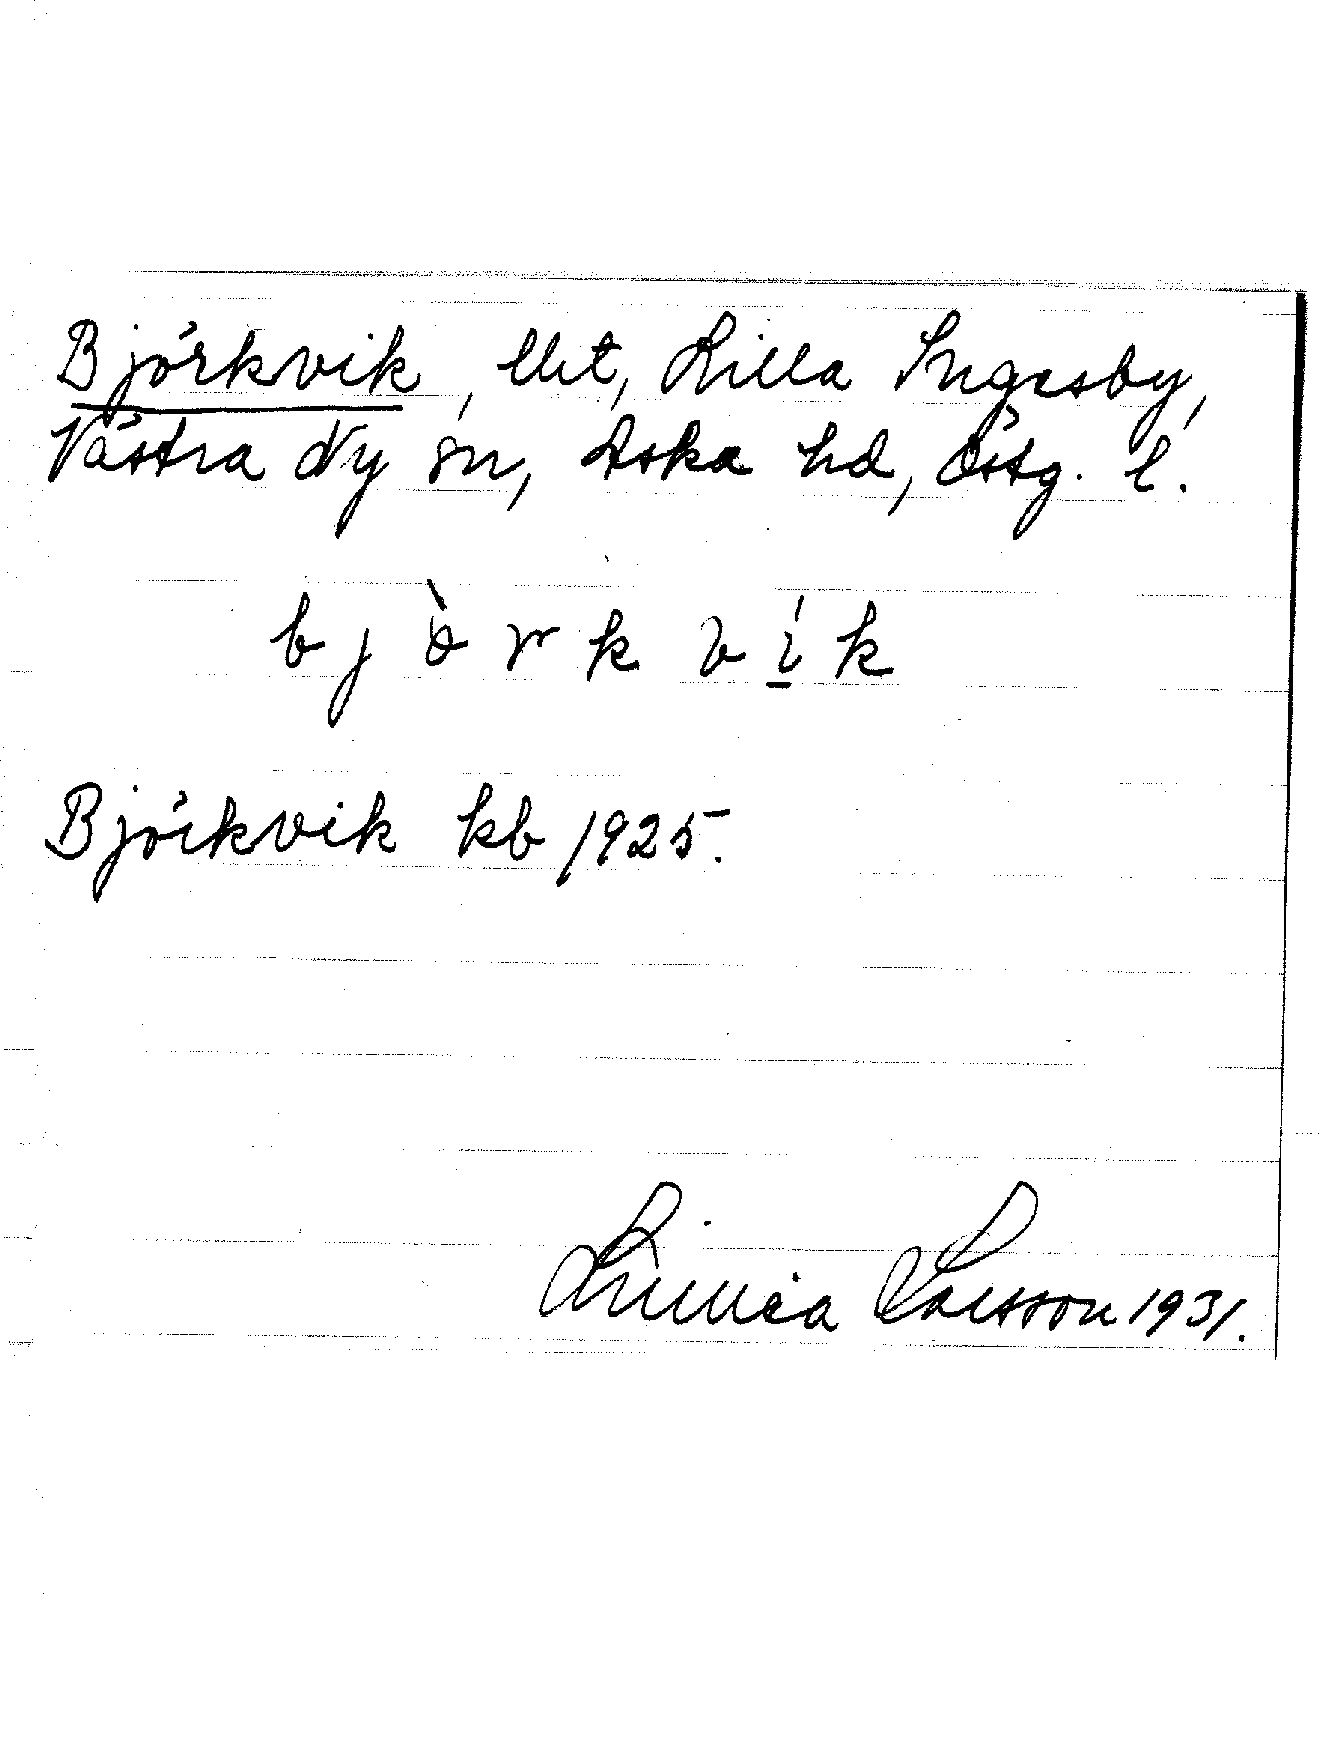 Björkvik, lht, Lilla Ingesby,
Västra Ny sn, Aska hd, Östg. l.
b j ò r k v í k
Björkvik kb 1925.
Linnéa Larsson 1931.